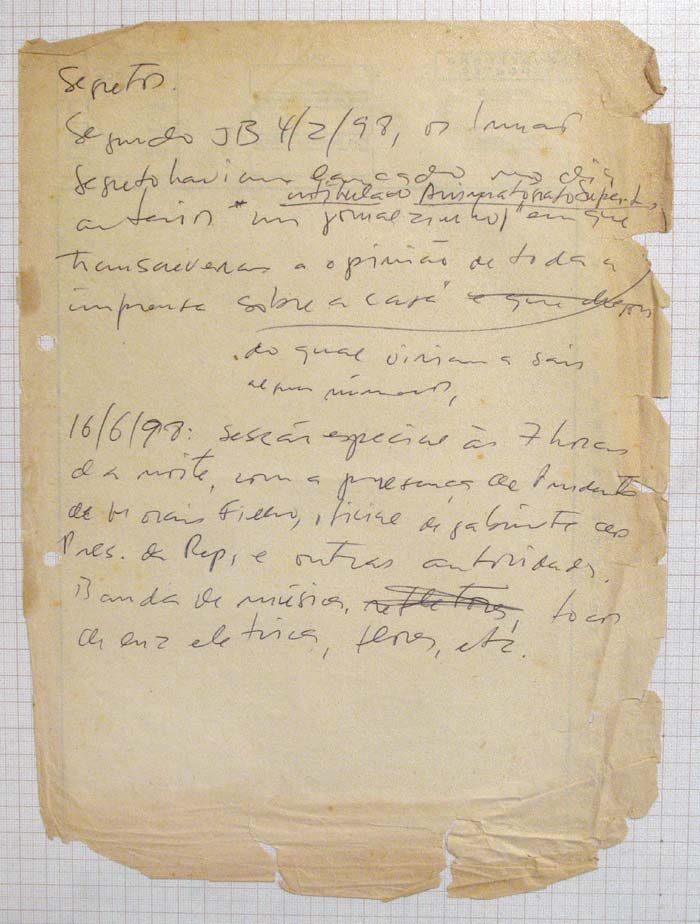 Segretos.
Segundo JB 4/2/98, os irmãos
Segreto haviam lançado no dia
intitulado Animatógrafo Super Lu
anterior "um jornalzinho," em que
transcreveram a opinião de toda a
imprensa sobre a casa" e que depois
do qual viriam a sair
alguns números,
16/6/98: sessão especial às 7 horas
da noite, com a presença de Prudente
de Morais Filho, oficial de gabinete do
Pres. da Rep, e outras autoridades.
Banda de música, refletores, focos
de luz elétrica, flores, etc.